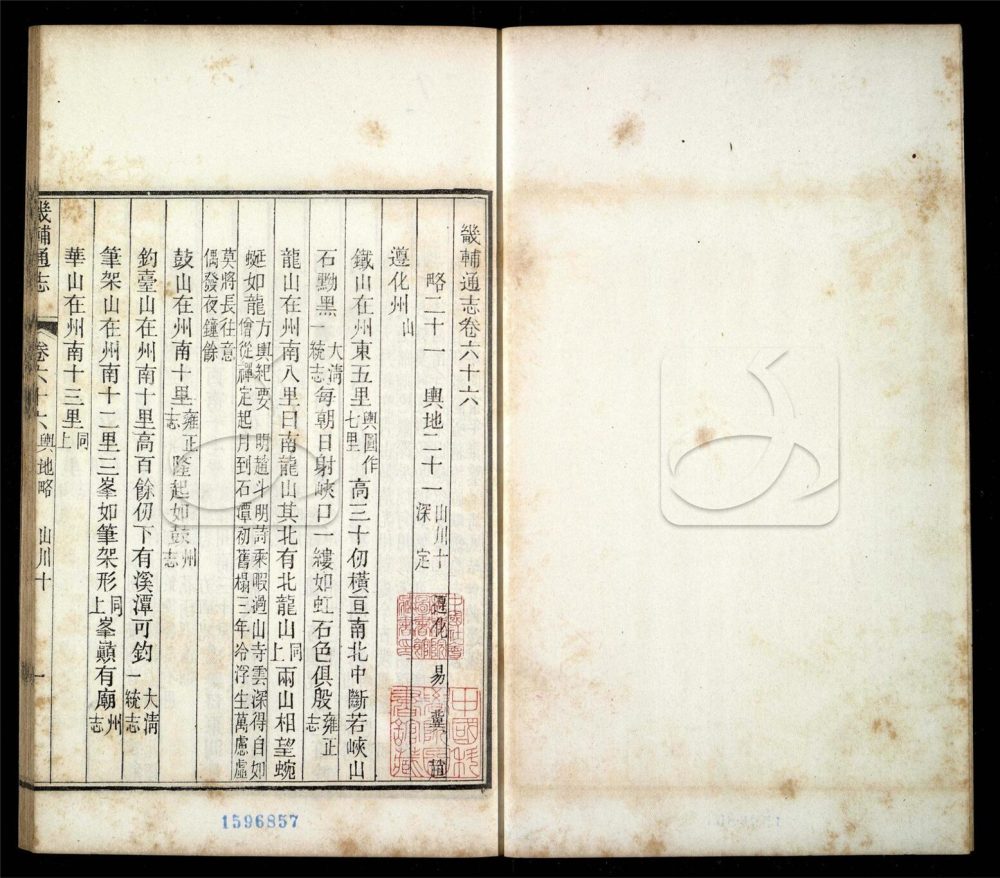 畿輔通志卷六十六
略二十一　輿地二十一　山川十　遵化　易　冀　趙　深　定
遵化州山
鐵山在州東五里輿圖作七里高三十仞橫亘南北中斷若峽山
石黝黑大淸一統志每朝日射峽口一縷如虹石色俱殷雍正志
龍山在州南八里曰南龍山其北有北龍山同上兩山相望蜿
蜒如龍方輿紀要　明趙斗明詩乘暇過山寺雲深得自如僧從禪定起月到石潭初舊榻三年冷浮生萬慮虛
莫將長往意偶發夜鐘餘
鼓山在州南十里雍正志隆起如鼓州志
釣臺山在州南十里高百餘仞下有溪潭可釣大淸一統志
筆架山在州南十二里三峯如筆架形同上峯顚有廟州志
華山在州南十三里同上
畿輔通志　卷六十六　輿地略　山川十　一
1596857